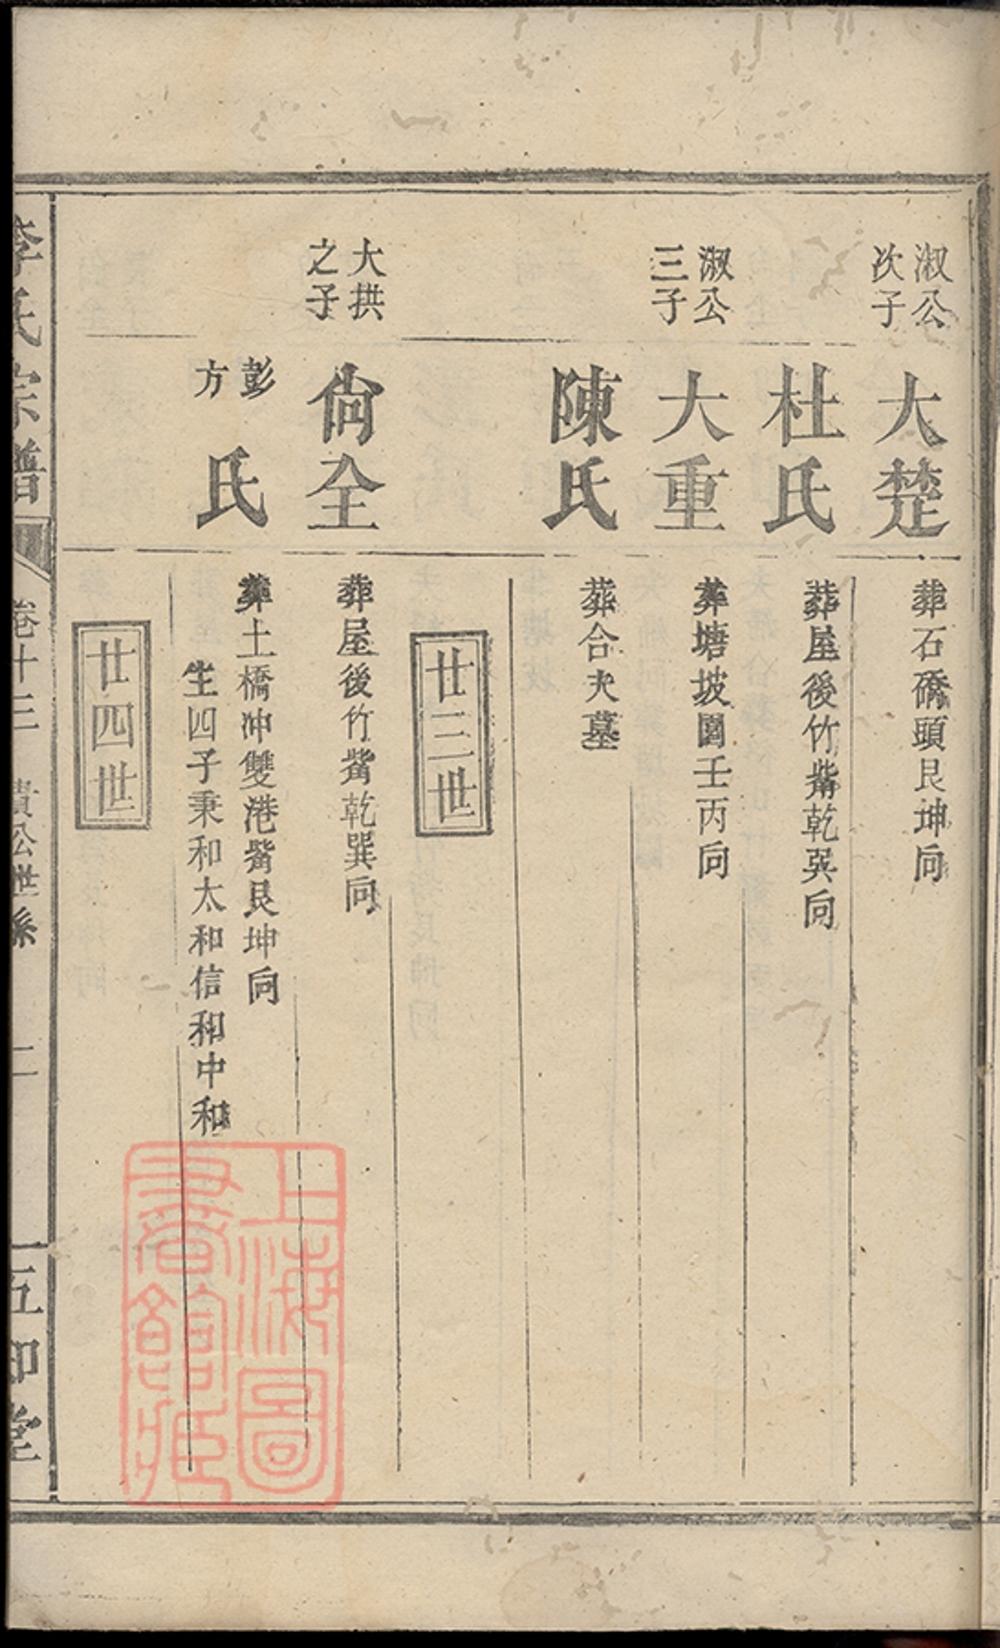 淑公
次子
大楚
葬石礄頭艮坤向
杜氏
葬屋後竹觜乾巽向
淑公
三子
大重
葬塘坡園壬丙向
陳氏
葬合夫墓
廿三世
大拱
之子
尙全
葬屋後竹觜乾巽向
彭
方
氏
葬土橋冲雙港觜艮坤向
生四子秉和太和信和中和
廿四世
李氏宗譜
卷十三
貴公世系
二
五知堂
上海圖
書館藏